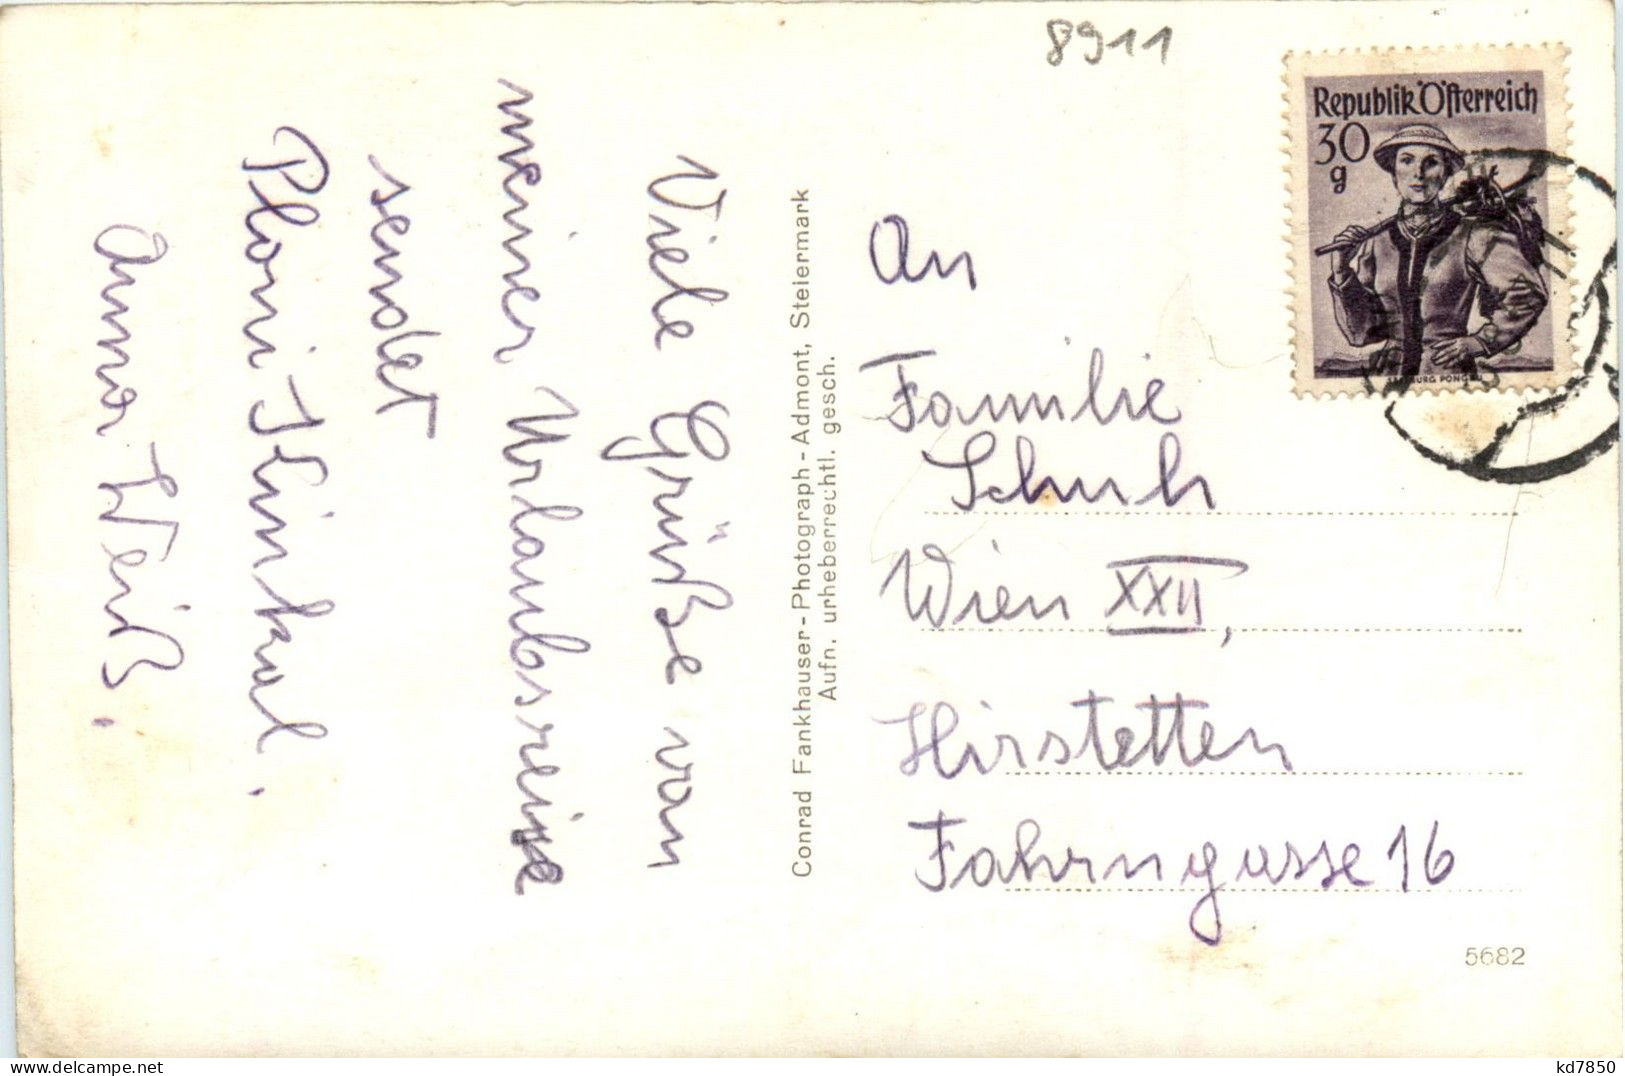 8911
Republik Österreich
30
g
Viele Grüße von
meiner Urlaubsreise
sendet
Anna Weiß.
Conrad Fankhauser - Photograph - Admont, Steiermark
Aufn. urheberrechtl. gesch.
An
Familie
Schuh
Wien XXII,
Hirstetten
Fahrngasse 16
5682
kd7850